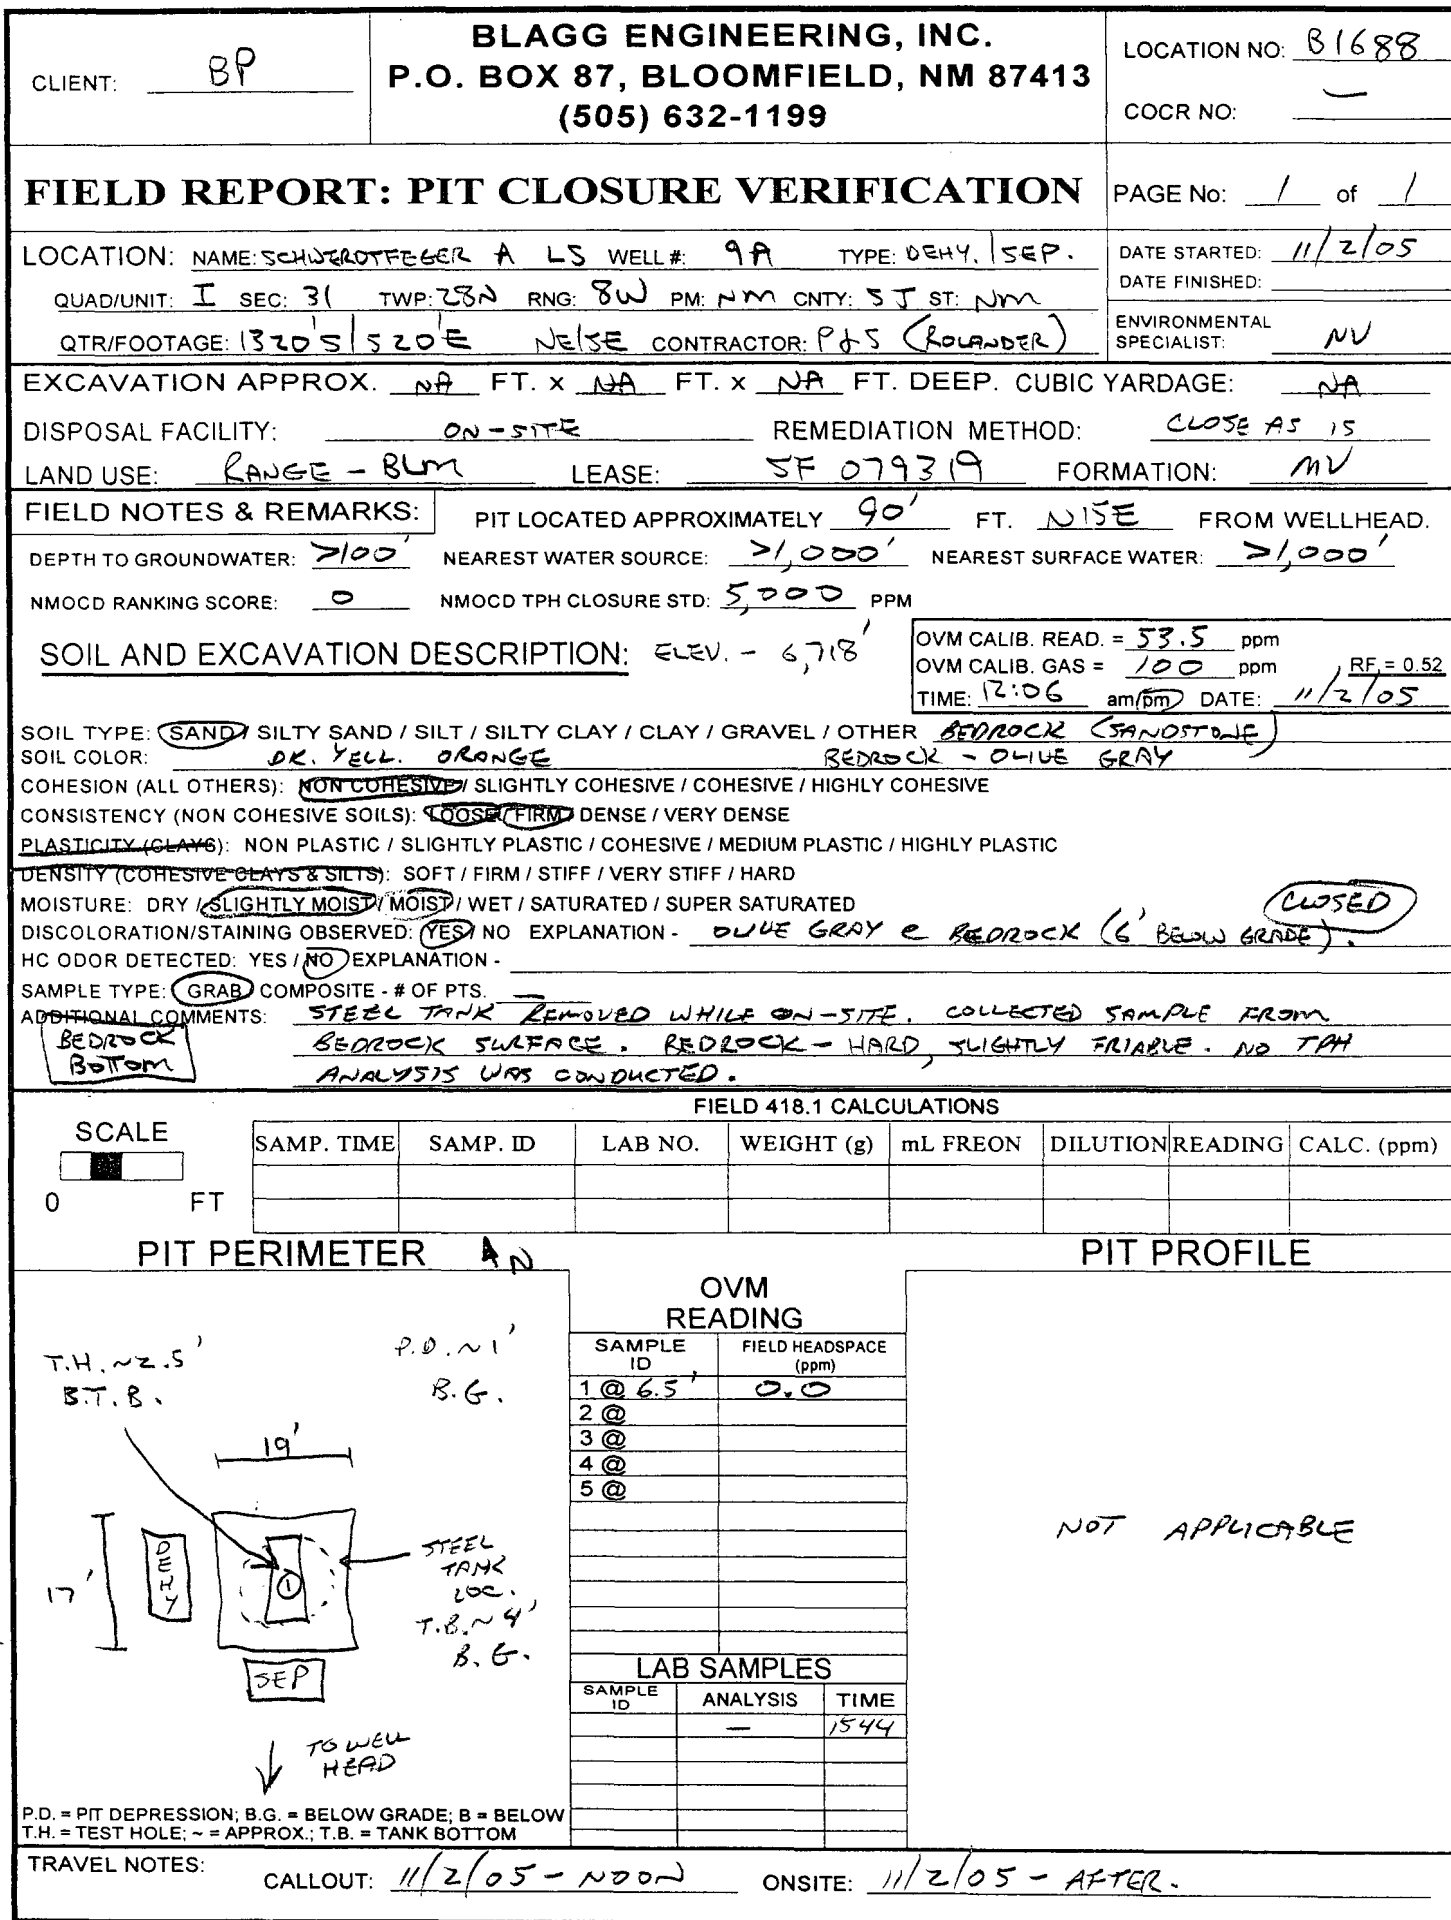 CLIENT: BP
BLAGG ENGINEERING, INC.
P.O. BOX 87, BLOOMFIELD, NM 87413
(505) 632-1199
LOCATION NO: B1688
COCR NO: —
FIELD REPORT: PIT CLOSURE VERIFICATION
PAGE No: 1 of 1
LOCATION: NAME: SCHWERDTFEGER A LS WELL #: 9A TYPE: DEHY. / SEP.
QUAD/UNIT: I SEC: 31 TWP: 28N RNG: 8W PM: NM CNTY: SJ ST: NM
QTR/FOOTAGE: 1320'S / 520'E NE/SE CONTRACTOR: P & S (ROLANDER)
DATE STARTED: 11/2/05
DATE FINISHED:
ENVIRONMENTAL
SPECIALIST: NV
EXCAVATION APPROX. NA FT. x NA FT. x NA FT. DEEP. CUBIC YARDAGE: NA
DISPOSAL FACILITY: ON-SITE REMEDIATION METHOD: CLOSE AS IS
LAND USE: RANGE - BLM LEASE: SF 079319 FORMATION: MV
FIELD NOTES & REMARKS: PIT LOCATED APPROXIMATELY 90' FT. N15E FROM WELLHEAD.
DEPTH TO GROUNDWATER: >100' NEAREST WATER SOURCE: >1,000' NEAREST SURFACE WATER: >1,000'
NMOCD RANKING SCORE: 0 NMOCD TPH CLOSURE STD: 5,000 PPM
SOIL AND EXCAVATION DESCRIPTION: ELEV. - 6,718'
OVM CALIB. READ. = 53.5 ppm
OVM CALIB. GAS = 100 ppm RF = 0.52
TIME: 12:06 am/pm DATE: 11/2/05
SOIL TYPE: SAND / SILTY SAND / SILT / SILTY CLAY / CLAY / GRAVEL / OTHER BEDROCK (SANDSTONE)
SOIL COLOR: DK. YELL. ORANGE BEDROCK - OLIVE GRAY
COHESION (ALL OTHERS): NON COHESIVE / SLIGHTLY COHESIVE / COHESIVE / HIGHLY COHESIVE
CONSISTENCY (NON COHESIVE SOILS): LOOSE / FIRM / DENSE / VERY DENSE
PLASTICITY (CLAYS): NON PLASTIC / SLIGHTLY PLASTIC / COHESIVE / MEDIUM PLASTIC / HIGHLY PLASTIC
DENSITY (COHESIVE CLAYS & SILTS): SOFT / FIRM / STIFF / VERY STIFF / HARD
MOISTURE: DRY / SLIGHTLY MOIST / MOIST / WET / SATURATED / SUPER SATURATED
CLOSED
DISCOLORATION/STAINING OBSERVED: YES / NO EXPLANATION - OLIVE GRAY @ BEDROCK (6' BELOW GRADE).
HC ODOR DETECTED: YES / NO EXPLANATION -
SAMPLE TYPE: GRAB / COMPOSITE - # OF PTS. —
ADDITIONAL COMMENTS: STEEL TANK REMOVED WHILE ON-SITE. COLLECTED SAMPLE FROM
BEDROCK SURFACE. BEDROCK - HARD, SLIGHTLY FRIABLE. NO TPH
ANALYSIS WAS CONDUCTED.
BEDROCK
BOTTOM
FIELD 418.1 CALCULATIONS
SCALE
0 FT
SAMP. TIME SAMP. ID LAB NO. WEIGHT (g) mL FREON DILUTION READING CALC. (ppm)
PIT PERIMETER N
T.H. ~2.5'
B.T.B.
P.D. ~1'
B.G.
19'
17'
DEHY
1
STEEL
TANK
LOC.
T.B. ~ 4'
B.G.
SEP
TO WELL
HEAD
P.D. = PIT DEPRESSION; B.G. = BELOW GRADE; B = BELOW
T.H. = TEST HOLE; ~ = APPROX.; T.B. = TANK BOTTOM
OVM
READING
SAMPLE ID FIELD HEADSPACE (ppm)
1 @ 6.5' 0.0
2 @
3 @
4 @
5 @
LAB SAMPLES
SAMPLE ID ANALYSIS TIME
— 1544
PIT PROFILE
NOT APPLICABLE
TRAVEL NOTES: CALLOUT: 11/2/05 - NOON ONSITE: 11/2/05 - AFTER.